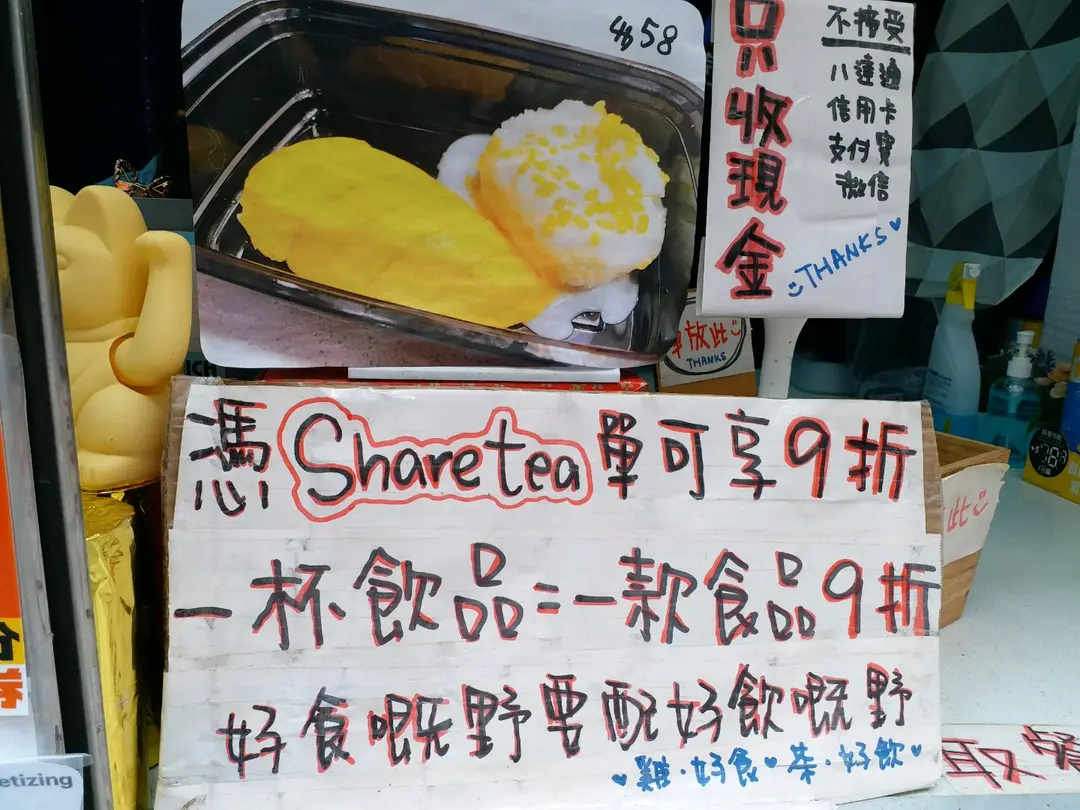 $58
只收現金
不接受
八達通
信用卡
支付寶
微信
THANKS
放此
THANKS
憑Sharetea單可享9折
一杯飲品=一款食品9折
好食嘅野要配好飲嘅野
雞·好食 茶·好飲
此
取餐
etizing